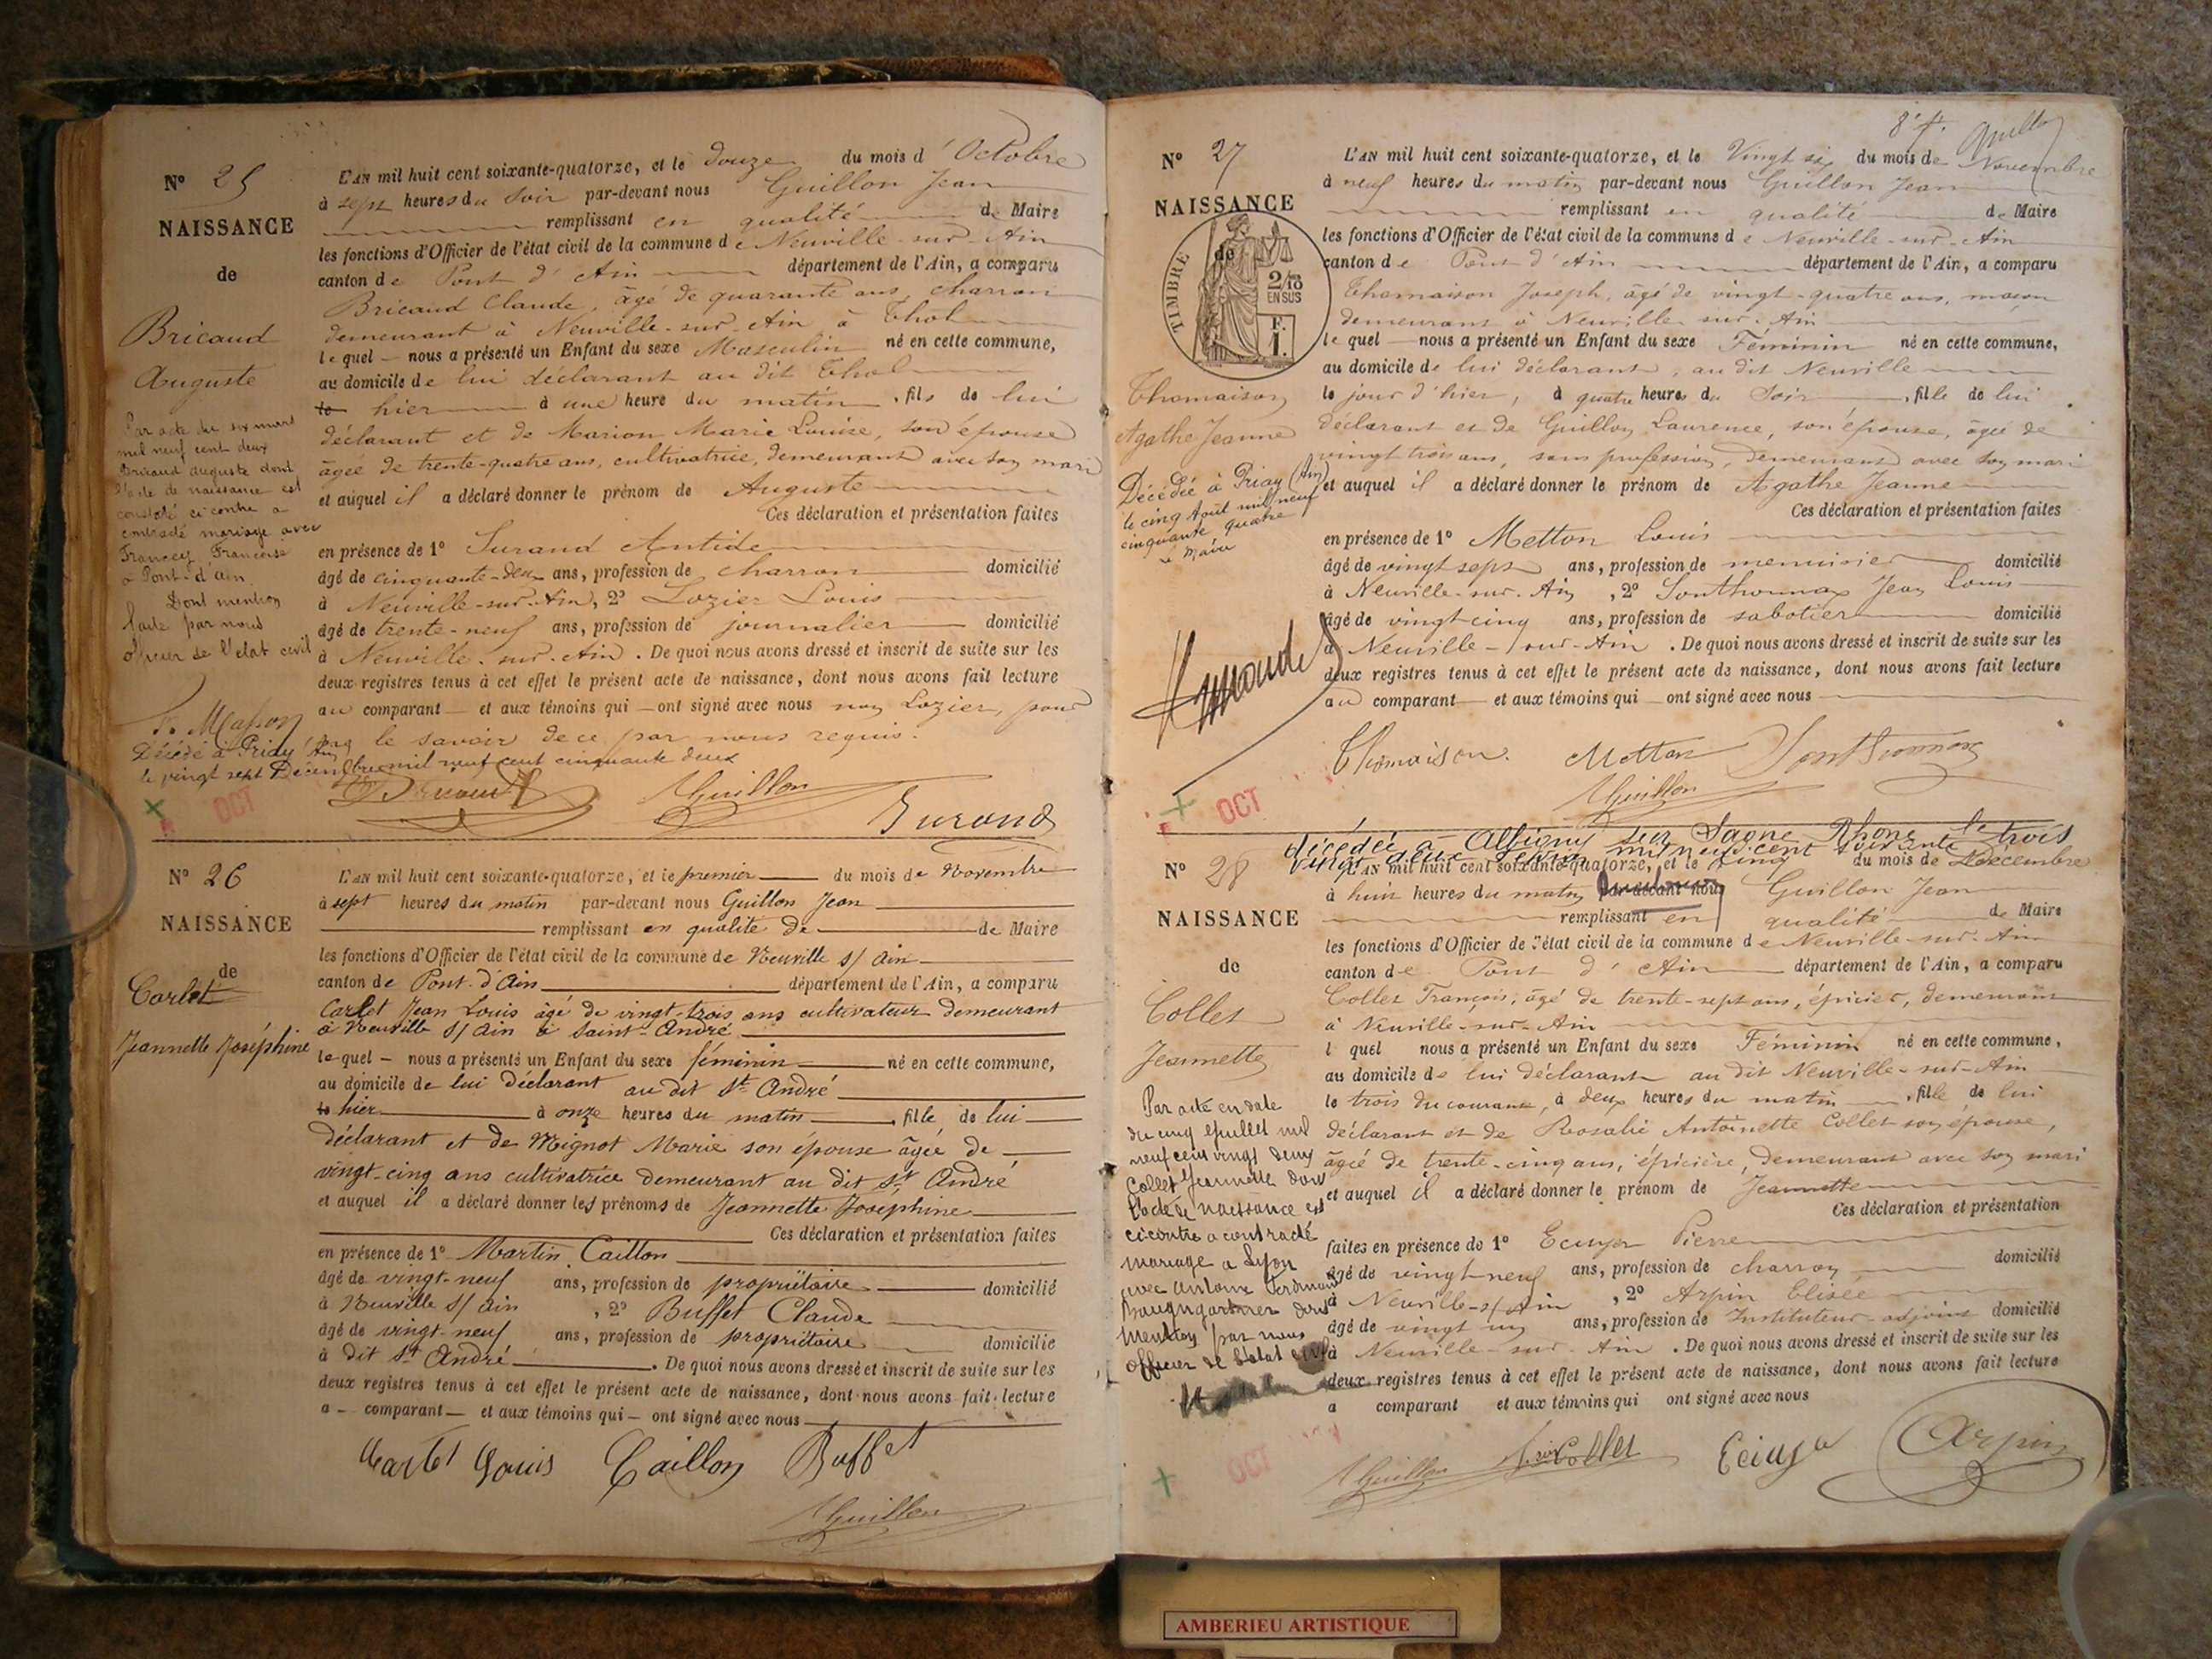 N° 25
NAISSANCE
de
Bricaud
Auguste
Par acte du six mars
mil neuf cent deux
Bricaud Auguste dont
l'acte de naissance est
constaté ci contre a
contracté mariage avec
Françoise
à Pont-d'ain.
Dont mention
faite par nous
officier de l'état civil
Décédé à Priay (Ain)
le vingt sept Décembre mil neuf cent cinquante deux
L'AN mil huit cent soixante-quatorze, et le douze du mois d'Octobre
à sept heures du soir par-devant nous Guillon Jean
remplissant en qualité de Maire
les fonctions d'Officier de l'état civil de la commune de Neuville-sur-Ain
canton de Pont d'Ain département de l'Ain, a comparu
Bricaud Claude, âgé de quarante ans, charron
demeurant à Neuville-sur-Ain à Thol
lequel nous a présenté un Enfant du sexe Masculin né en cette commune,
au domicile de lui déclarant au dit Thol
le hier à une heure du matin, fils de lui
déclarant et de Marion Marie Louise, son épouse
âgée de trente-quatre ans, cultivatrice, demeurant avec son mari
et auquel il a déclaré donner le prénom de Auguste
Ces déclaration et présentation faites
en présence de 1° Durand Antide
âgé de cinquante-deux ans, profession de charron domicilié
à Neuville-sur-Ain, 2° Lozier Louis
âgé de trente-neuf ans, profession de journalier domicilié
à Neuville-sur-Ain. De quoi nous avons dressé et inscrit de suite sur les
deux registres tenus à cet effet le présent acte de naissance, dont nous avons fait lecture
au comparant et aux témoins qui ont signé avec nous non Lozier, pour
le savoir de ce par nous requis.
Guillon
Durand
OCT
N° 26
NAISSANCE
de
Carlet
Jeannette Joséphine
L'AN mil huit cent soixante-quatorze, et le premier du mois de Novembre
à sept heures du matin par-devant nous Guillon Jean
remplissant en qualité de de Maire
les fonctions d'Officier de l'état civil de la commune de Neuville s/ Ain
canton de Pont-d'Ain département de l'Ain, a comparu
Carlet Jean Louis âgé de vingt-trois ans cultivateur demeurant
à Neuville s/ Ain à Saint-André
lequel nous a présenté un Enfant du sexe féminin né en cette commune,
au domicile de lui Déclarant au dit St André
le hier à onze heures du matin, fille de lui
déclarant et de Mignot Marie son épouse âgée de
vingt-cinq ans cultivatrice demeurant au dit St André
et auquel il a déclaré donner les prénoms de Jeannette Joséphine
Ces déclaration et présentation faites
en présence de 1° Martin Caillon
âgé de vingt-neuf ans, profession de propriétaire domicilié
à Neuville s/ Ain, 2° Buffet Claude
âgé de vingt-neuf ans, profession de propriétaire domicilié
à dit St André. De quoi nous avons dressé et inscrit de suite sur les
deux registres tenus à cet effet le présent acte de naissance, dont nous avons fait lecture
a comparant et aux témoins qui ont signé avec nous
Carlet Louis Caillon Buffet
Guillon
8e f. Guillon
N° 27
NAISSANCE
de
TIMBRE
2/10
EN SUS
F.
1.
Thomaison
Agathe Jeanne
Décédée à Priay (Ain)
le cinq Août mil neuf
cinquante quatre
Le Maire
L'AN mil huit cent soixante-quatorze, et le Vingt six du mois de Novembre
à neuf heures du matin par-devant nous Guillon Jean
remplissant en qualité de Maire
les fonctions d'Officier de l'état civil de la commune de Neuville-sur-Ain
canton de Pont d'Ain département de l'Ain, a comparu
Thomaison Joseph, âgé de vingt-quatre ans, maçon
demeurant à Neuville-sur-Ain
lequel nous a présenté un Enfant du sexe Féminin né en cette commune,
au domicile de lui déclarant, au dit Neuville
le jour d'hier, à quatre heures du soir, fille de lui
déclarant et de Guillon Laurence, son épouse, âgée de
vingt trois ans, sans profession, demeurant avec son mari
et auquel il a déclaré donner le prénom de Agathe Jeanne
Ces déclaration et présentation faites
en présence de 1° Metton Louis
âgé de vingt sept ans, profession de menuisier domicilié
à Neuville-sur-Ain, 2° Sonthonnax Jean Louis
âgé de vingt cinq ans, profession de sabotier domicilié
à Neuville-sur-Ain. De quoi nous avons dressé et inscrit de suite sur les
deux registres tenus à cet effet le présent acte de naissance, dont nous avons fait lecture
au comparant et aux témoins qui ont signé avec nous
Thomaison. Metton Sonthonnax
Guillon
OCT
décédée à Albigny sur Saone Rhone le trois
N° 28
NAISSANCE
de
Collet
Jeannette
Par acte en date
du cinq juillet mil
neuf cent vingt deux
Collet Jeannette dont
l'acte de naissance est
ci contre a contracté
mariage à Lyon
avec Antoine Ferdinand
Baumgartner dont
mention par nous
officier de l'état civil
L'AN mil huit cent soixante-quatorze, et le cinq du mois de Décembre
à huit heures du matin par-devant nous Guillon Jean
remplissant en qualité de Maire
les fonctions d'Officier de l'état civil de la commune de Neuville-sur-Ain
canton de Pont d'Ain département de l'Ain, a comparu
Collet François, âgé de trente-sept ans, épicier, demeurant
à Neuville-sur-Ain
l quel nous a présenté un Enfant du sexe Féminin né en cette commune,
au domicile de lui déclarant au dit Neuville-sur-Ain
le trois du courant, à deux heures du matin, fille de lui
déclarant et de Rosalie Antoinette Collet son épouse,
âgée de trente-cinq ans, épicière, demeurant avec son mari
et auquel il a déclaré donner le prénom de Jeannette
Ces déclaration et présentation
faites en présence de 1° Ecuyer Pierre
âgé de vingt-neuf ans, profession de charron domicilié
à Neuville-s/ Ain, 2° Arpin Elisée
âgé de vingt un ans, profession de Instituteur-adjoint domicilié
à Neuville-sur-Ain. De quoi nous avons dressé et inscrit de suite sur les
deux registres tenus à cet effet le présent acte de naissance, dont nous avons fait lecture
a comparant et aux témoins qui ont signé avec nous
Guillon Collet Ecuyer Arpin
OCT
AMBERIEU ARTISTIQUE